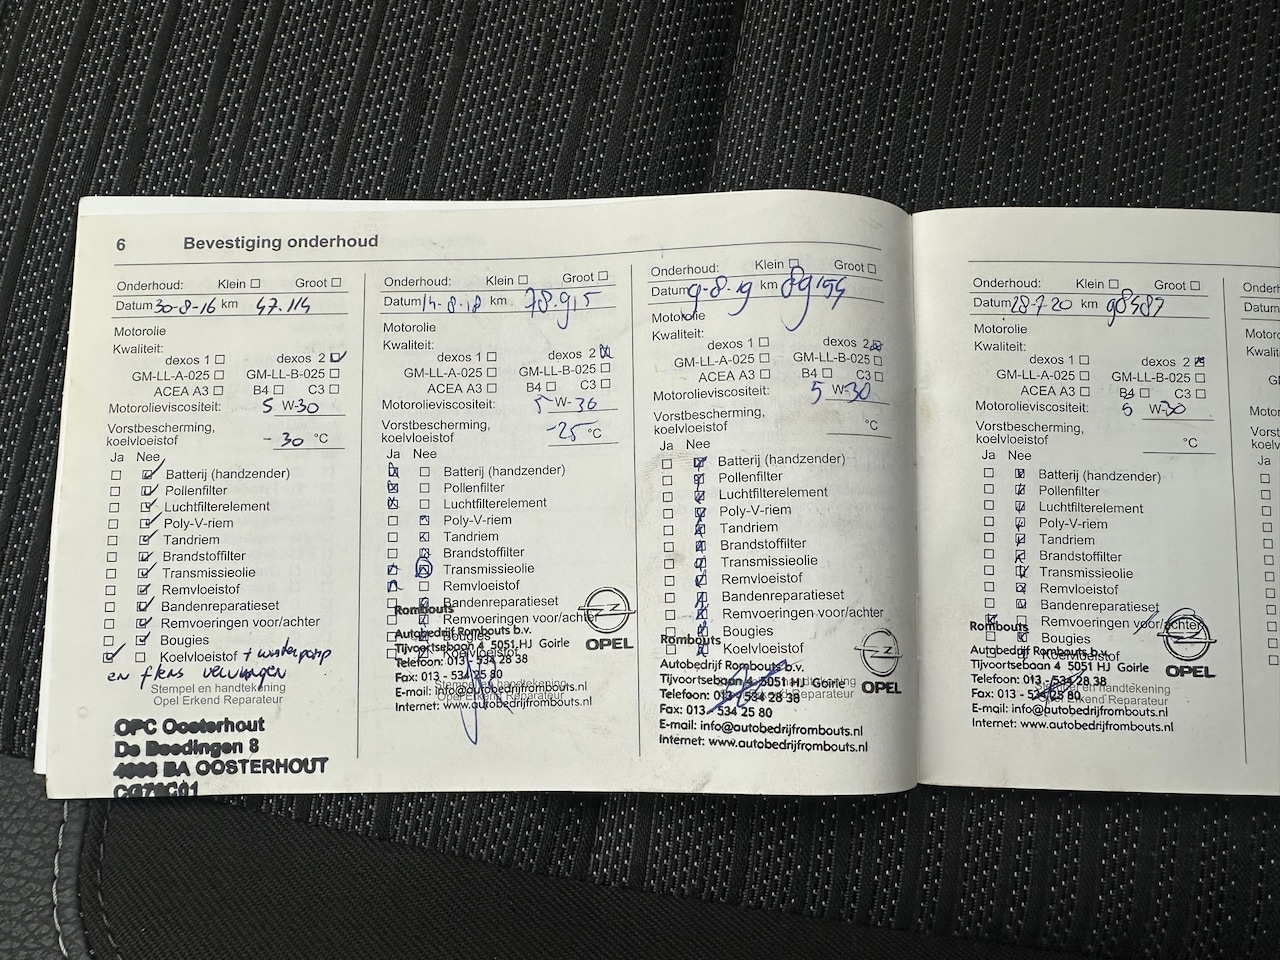 6 Bevestiging onderhoud
Onderhoud: Klein Groot
Datum 30-8-16 km 47.114
Motorolie
Kwaliteit:
dexos 1 dexos 2
GM-LL-A-025 GM-LL-B-025
ACEA A3 B4 C3
Motorolieviscositeit: 5 W-30
Vorstbescherming,
koelvloeistof -30 °C
Ja Nee
Batterij (handzender)
Pollenfilter
Luchtfilterelement
Poly-V-riem
Tandriem
Brandstoffilter
Transmissieolie
Remvloeistof
Bandenreparatieset
Remvoeringen voor/achter
Bougies
Koelvloeistof + waterpomp
en flens vervangen
Stempel en handtekening
Opel Erkend Reparateur
OPC Oosterhout
De Beedingen 8
BA OOSTERHOUT
Onderhoud: Klein Groot
Datum 14-8-18 km 78.915
Motorolie
Kwaliteit:
dexos 1 dexos 2
GM-LL-A-025 GM-LL-B-025
ACEA A3 B4 C3
Motorolieviscositeit: 5 W-30
Vorstbescherming,
koelvloeistof -25 °C
Ja Nee
Batterij (handzender)
Pollenfilter
Luchtfilterelement
Poly-V-riem
Tandriem
Brandstoffilter
Transmissieolie
Remvloeistof
Bandenreparatieset
Remvoeringen voor/achter
Bougies
Koelvloeistof
Stempel en handtekening
Opel Erkend Reparateur
Rombouts
Autobedrijf Rombouts b.v.
Tijvoortsebaan 4 5051 HJ Goirle
Telefoon: 013 - 534 28 38
Fax: 013 - 534 25 80
E-mail: info@autobedrijfrombouts.nl
Internet: www.autobedrijfrombouts.nl
OPEL
Onderhoud: Klein Groot
Datum 9-8-19 km 89194
Motorolie
Kwaliteit:
dexos 1 dexos 2
GM-LL-A-025 GM-LL-B-025
ACEA A3 B4 C3
Motorolieviscositeit: 5 W-30
Vorstbescherming,
koelvloeistof °C
Ja Nee
Batterij (handzender)
Pollenfilter
Luchtfilterelement
Poly-V-riem
Tandriem
Brandstoffilter
Transmissieolie
Remvloeistof
Bandenreparatieset
Remvoeringen voor/achter
Bougies
Koelvloeistof
Stempel en handtekening
Opel Erkend Reparateur
Rombouts
Autobedrijf Rombouts b.v.
Tijvoortsebaan 4 5051 HJ Goirle
Telefoon: 013 - 534 28 38
Fax: 013 - 534 25 80
E-mail: info@autobedrijfrombouts.nl
Internet: www.autobedrijfrombouts.nl
OPEL
Onderhoud: Klein Groot
Datum 28-7-20 km 98487
Motorolie
Kwaliteit:
dexos 1 dexos 2
GM-LL-A-025 GM-LL-B-025
ACEA A3 B4 C3
Motorolieviscositeit: 5 W-30
Vorstbescherming,
koelvloeistof °C
Ja Nee
Batterij (handzender)
Pollenfilter
Luchtfilterelement
Poly-V-riem
Tandriem
Brandstoffilter
Transmissieolie
Remvloeistof
Bandenreparatieset
Remvoeringen voor/achter
Bougies
Koelvloeistof
Stempel en handtekening
Opel Erkend Reparateur
Rombouts
Autobedrijf Rombouts b.v.
Tijvoortsebaan 4 5051 HJ Goirle
Telefoon: 013 - 534 28 38
Fax: 013 - 534 25 80
E-mail: info@autobedrijfrombouts.nl
Internet: www.autobedrijfrombouts.nl
OPEL
Datum
Ja